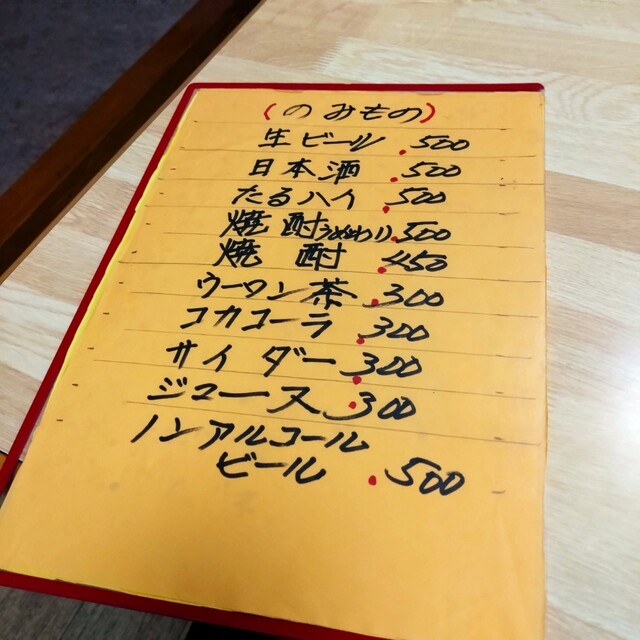 (のみもの)
生ビール .500
日本酒 .500
たるハイ .500
焼酎うめわり.500
焼酎 .450
ウーロン茶.300
コカコーラ.300
サイダー.300
ジュース.300
ノンアルコール
ビール .500